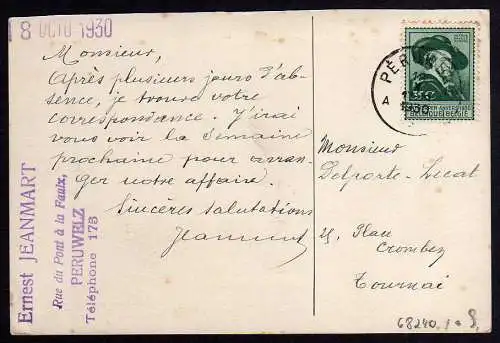 18 OCTO 1930
Monsieur,
Après plusieurs jours d'ab-
sence, je trouve votre
correspondance. J'irai
vous voir la semaine
prochaine pour arran-
ger notre affaire.
Sincères salutations
Jeanmart
Ernest JEANMART
Rue du Pont à la Faulx,
PERUWELZ
Téléphone 175
A
1930
BELGIQUE BELGIË
Monsieur
Delporte-Lecat
Place
Crombez
Tournai
68240